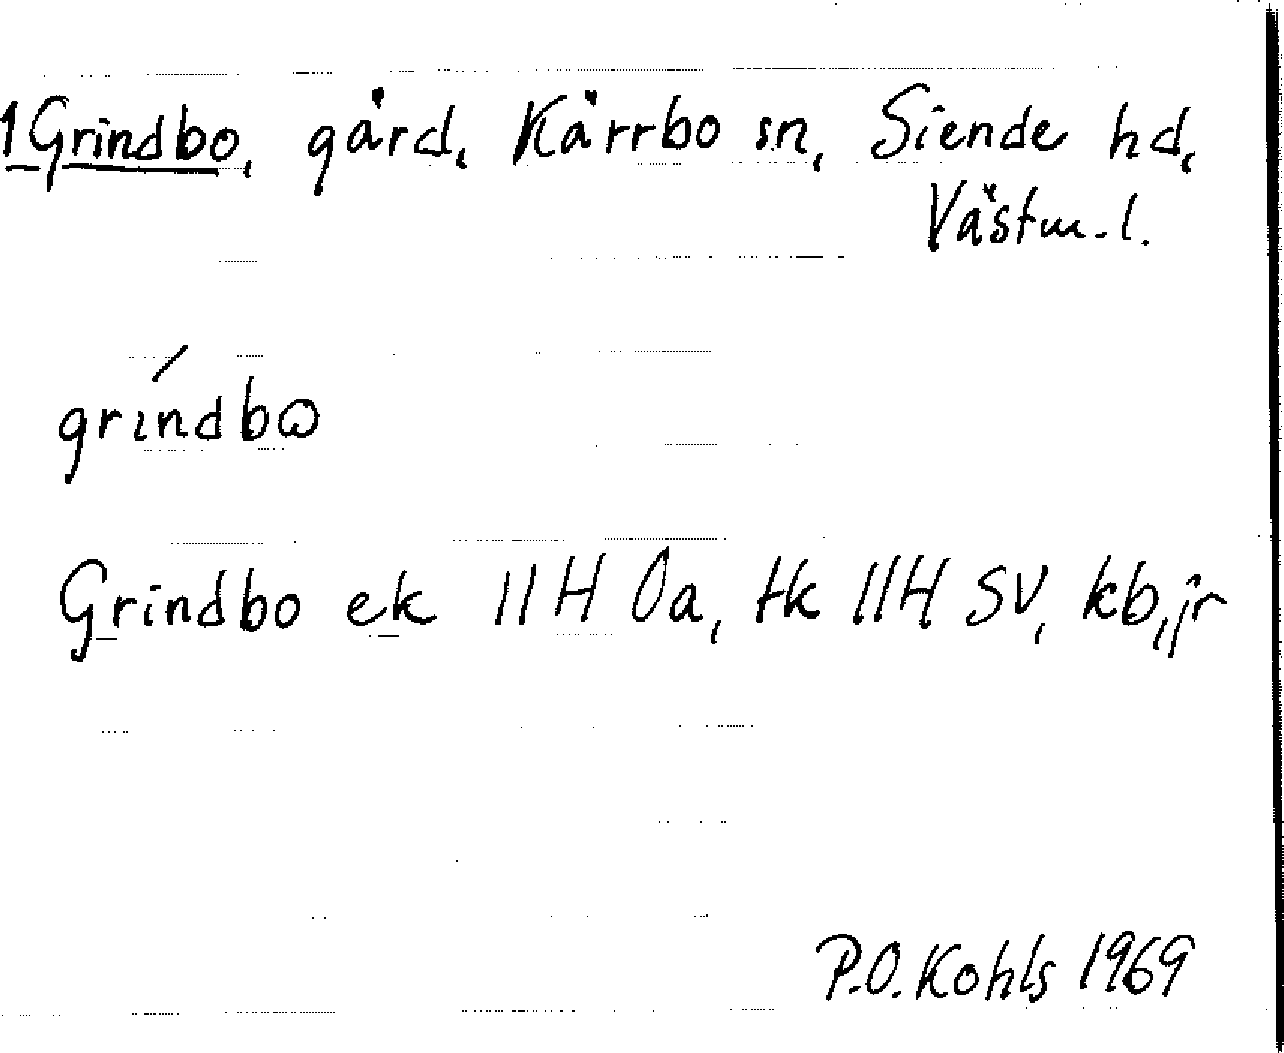 1 Grindbo, gård, Kärrbo sn, Siende hd,
Västm. l.
gríndbω
Grindbo ek 11H 0a, tk 11H SV, kb, jr
P.O. Kohls 1969